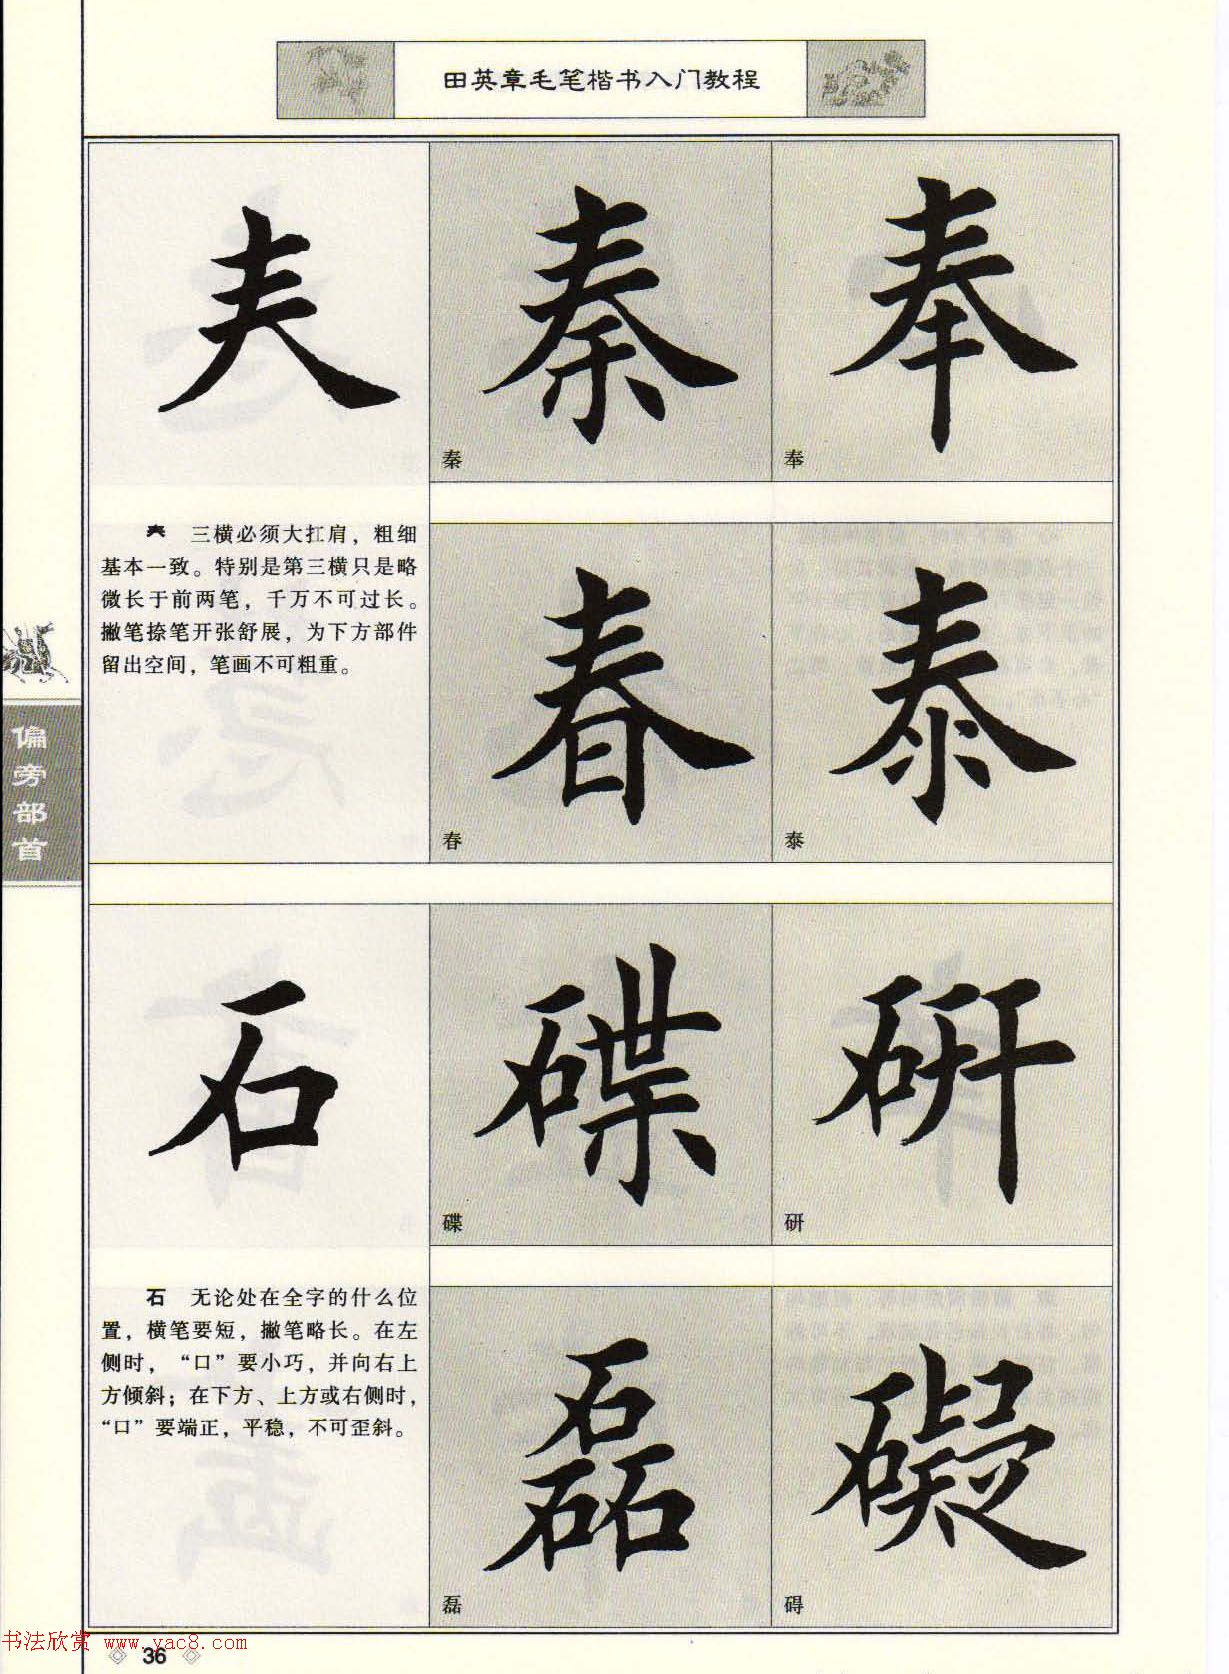 田英章毛笔楷书入门教程
𡗗
秦
奉
秦
奉
𡗗 三横必须大扛肩，粗细
基本一致。特别是第三横只是略
微长于前两笔，千万不可过长。
撇笔捺笔开张舒展，为下方部件
留出空间，笔画不可粗重。
春
泰
春
泰
偏旁部首
石
碟
研
碟
研
石 无论处在全字的什么位
置，横笔要短，撇笔略长。在左
侧时，“口”要小巧，并向右上
方倾斜；在下方、上方或右侧时，
“口”要端正，平稳，不可歪斜。
磊
礙
磊
碍
书法欣赏 www.yac8.com
36